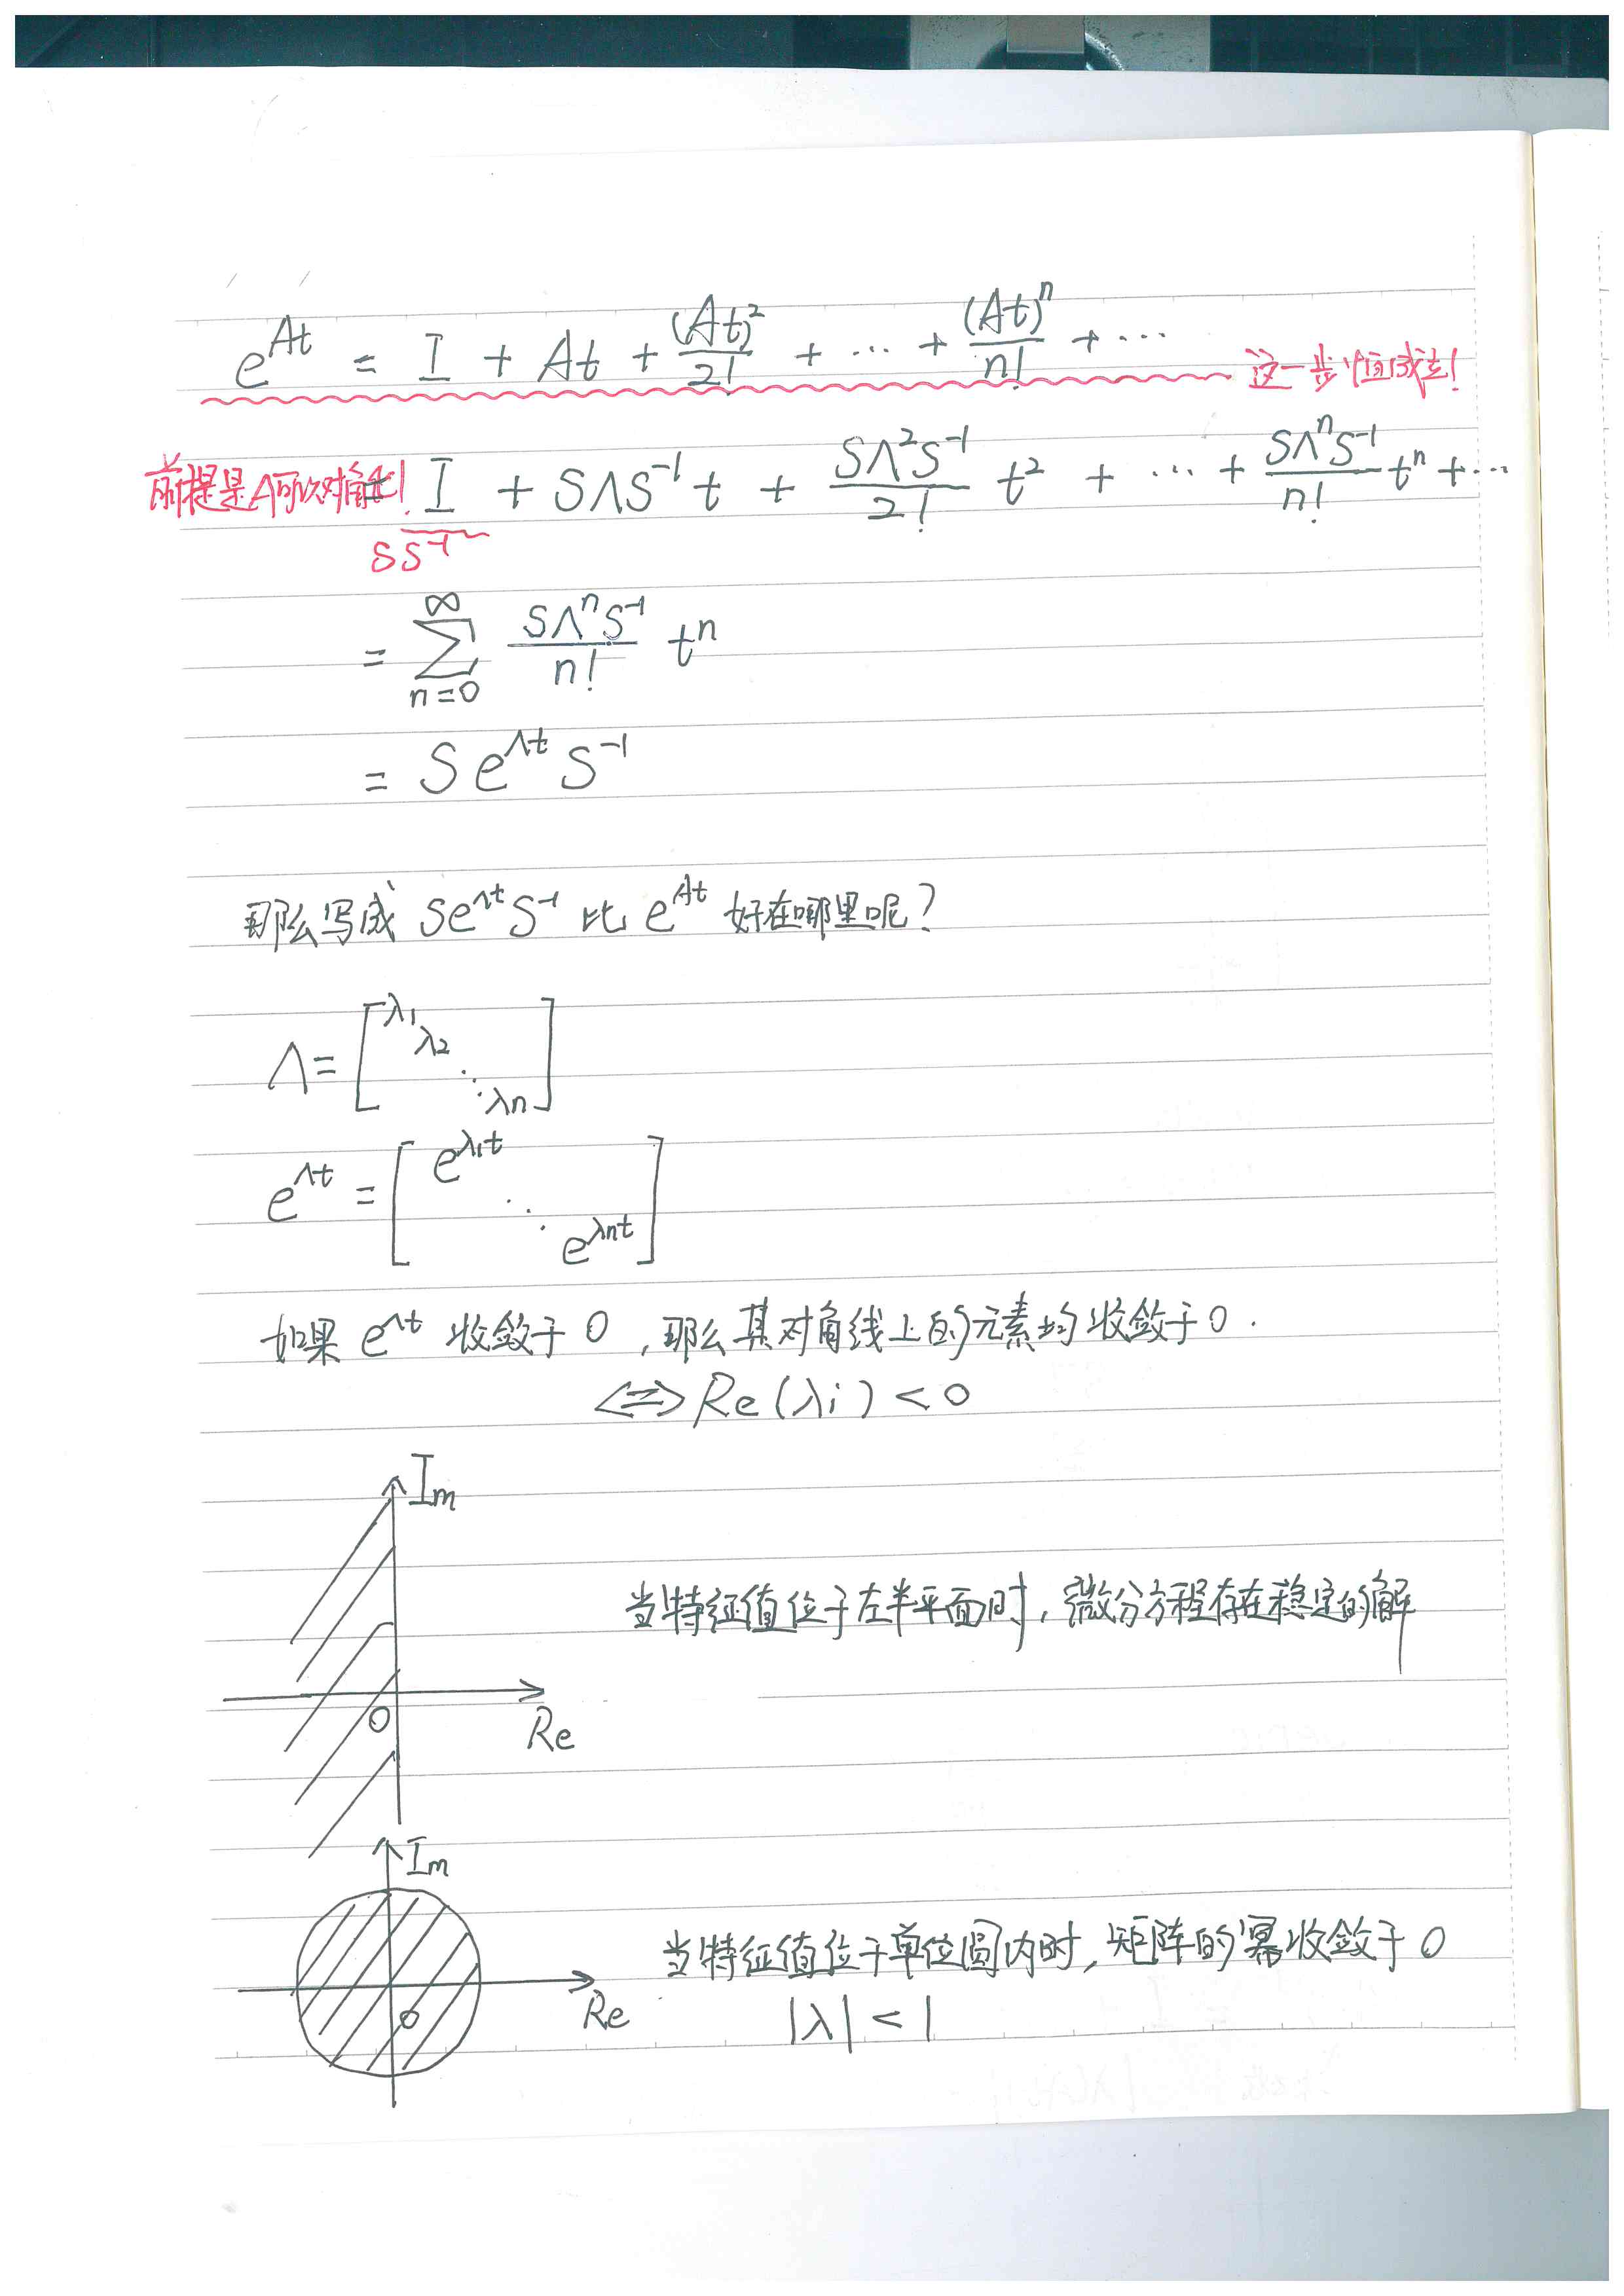 e^{At} = I + At + \frac{(At)^2}{2!} + ... + \frac{(At)^n}{n!} + ... 这一步恒成立!
前提是A可以对角化! = I + SΛS^{-1}t + \frac{SΛ^2S^{-1}}{2!} t^2 + ... + \frac{SΛ^nS^{-1}}{n!} t^n + ...
SS^{-1}
= \sum_{n=0}^{∞} \frac{SΛ^nS^{-1}}{n!} t^n
= S e^{Λt} S^{-1}
那么写成 Se^{Λt}S^{-1} 比 e^{At} 好在哪里呢?
Λ = [λ1 λ2 ⋱ λn]
e^{Λt} = [e^{λ1t} ⋱ e^{λnt}]
如果 e^{Λt} 收敛于 0 ,那么其对角线上的元素均收敛于 0 .
<=> Re(λi) < 0
Im
当特征值位于左半平面时, 微分方程存在稳定的解
0
Re
Im
当特征值位于单位圆内时, 矩阵的幂收敛于 0
0
Re
|λ| < 1